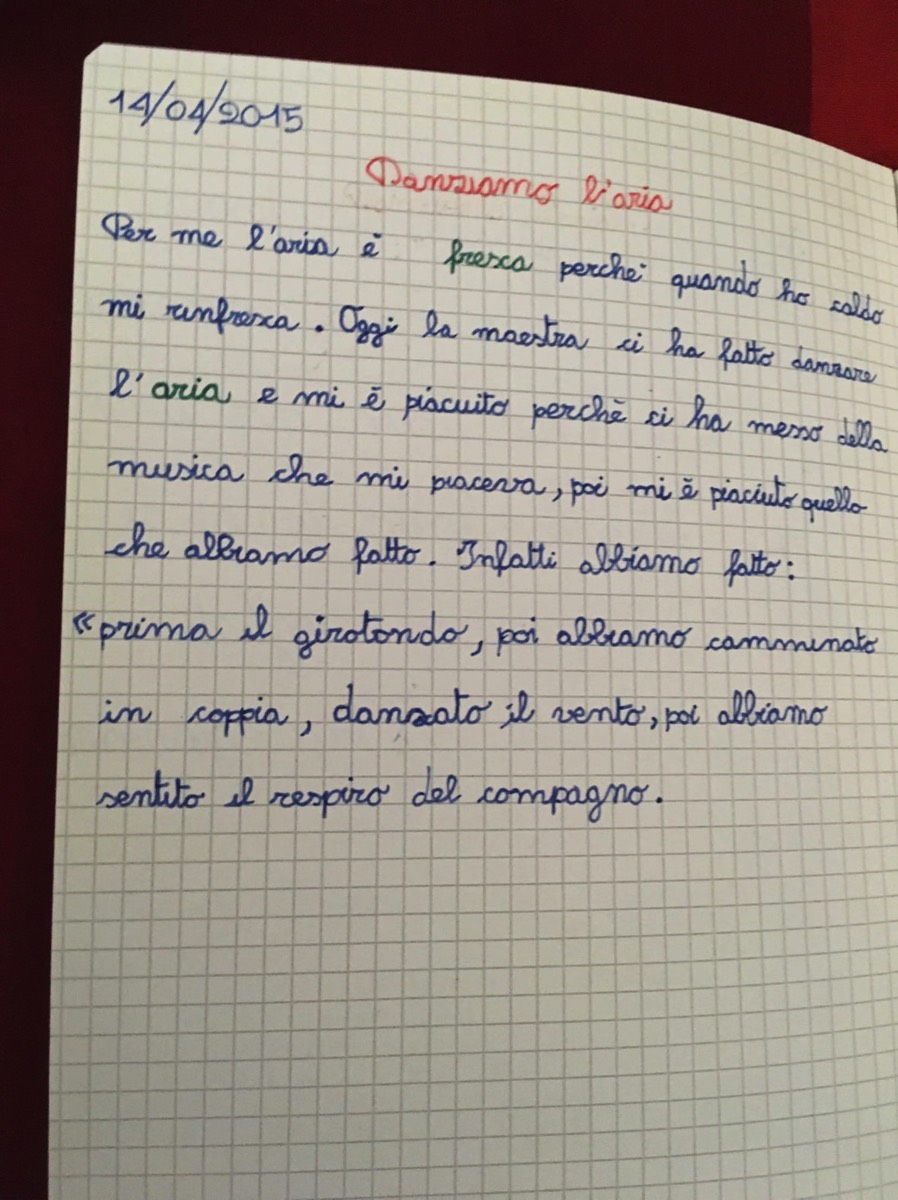 14/04/2015
Danziamo l'aria
Per me l'aria è fresca perché quando ho caldo
mi rinfresca. Oggi la maestra ci ha fatto danzare
l'aria e mi è piacuito perchè ci ha messo della
musica che mi piaceva, poi mi è piaciuto quello
che abbiamo fatto. Infatti abbiamo fatto:
"prima il girotondo, poi abbiamo camminato
in coppia, danzato il vento, poi abbiamo
sentito il respiro del compagno.